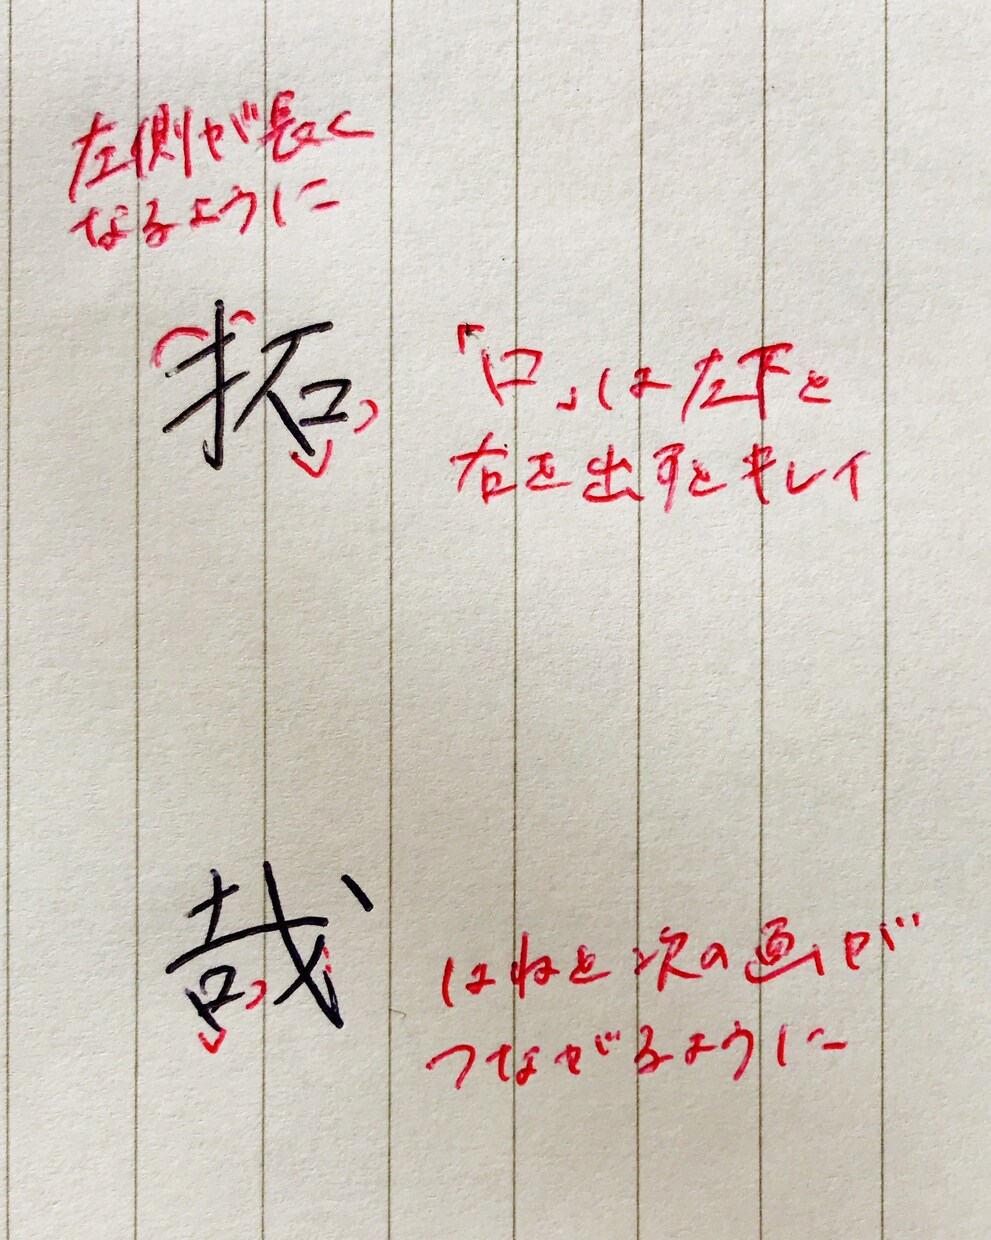 左側が長く
なるように
拓
「口」は左下と
右を出すとキレイ
哉
はねと次の画が
つながるように